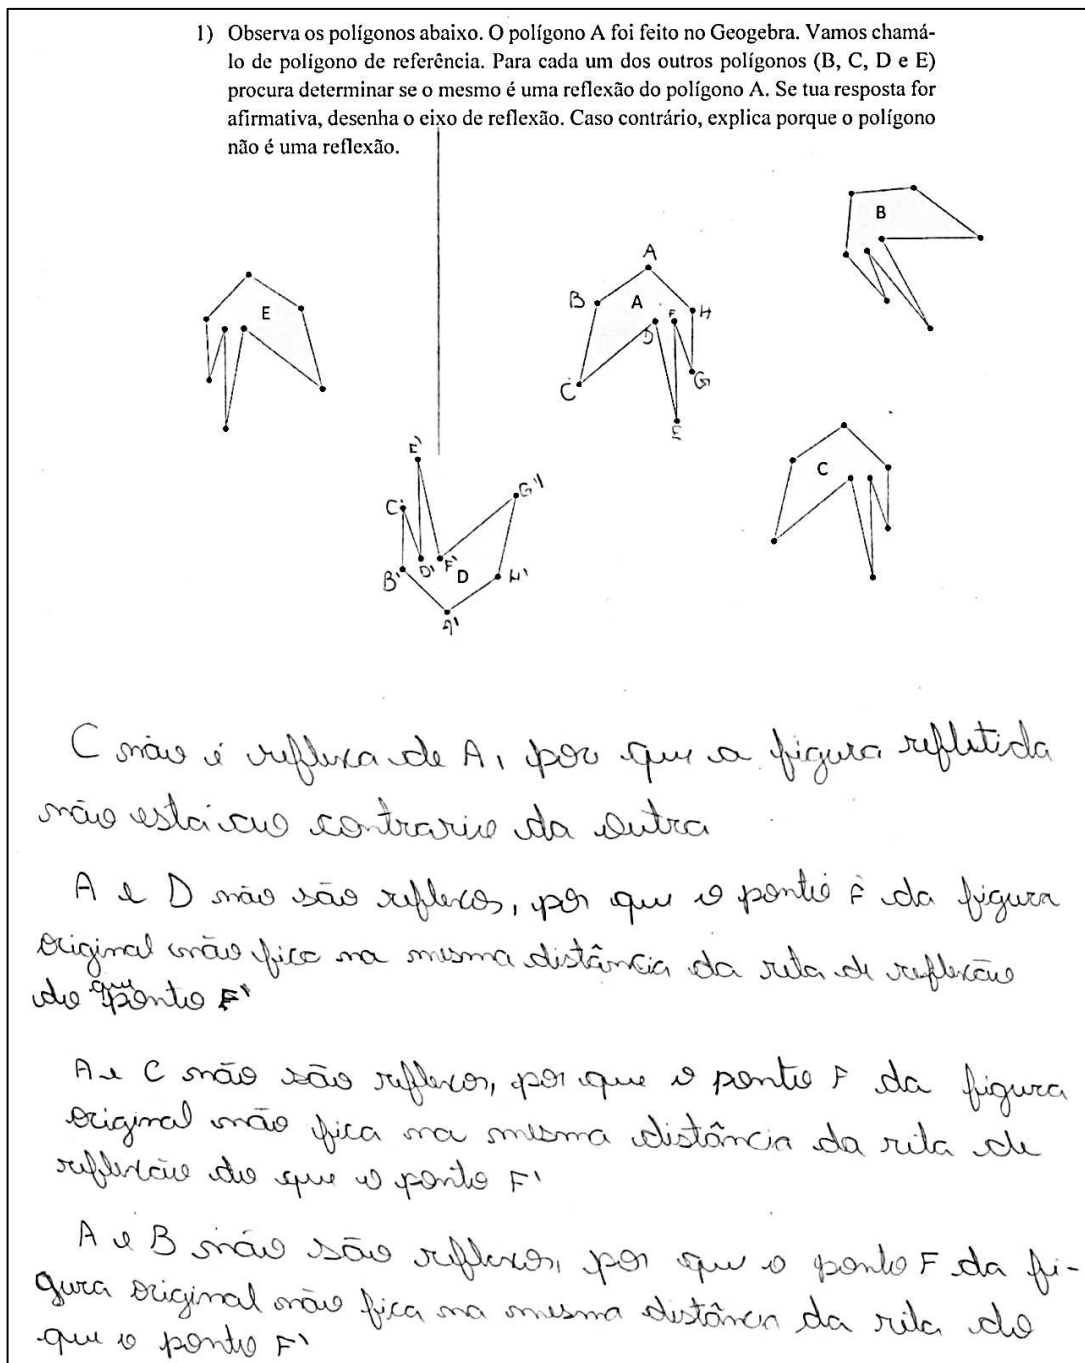 1) Observa os polígonos abaixo. O polígono A foi feito no Geogebra. Vamos chamá-
lo de polígono de referência. Para cada um dos outros polígonos (B, C, D e E)
procura determinar se o mesmo é uma reflexão do polígono A. Se tua resposta for
afirmativa, desenha o eixo de reflexão. Caso contrário, explica porque o polígono
não é uma reflexão.
B
A
E
B A F H
D
C G
E
E'
C
C' G'
B' D' F' D H'
A'
C não é reflexa de A, por que a figura refletida
não está ao contrario da outra
A e D não são reflexos, por que o ponto F da figura
original não fica na mesma distância da reta de reflexão
do que ponto F'
A e C não são reflexos, por que o ponto F da figura
original não fica na mesma distância da reta de
reflexão do que o ponto F'
A e B não são reflexos, por que o ponto F da fi-
gura original não fica na mesma distância da reta do
que o ponto F'